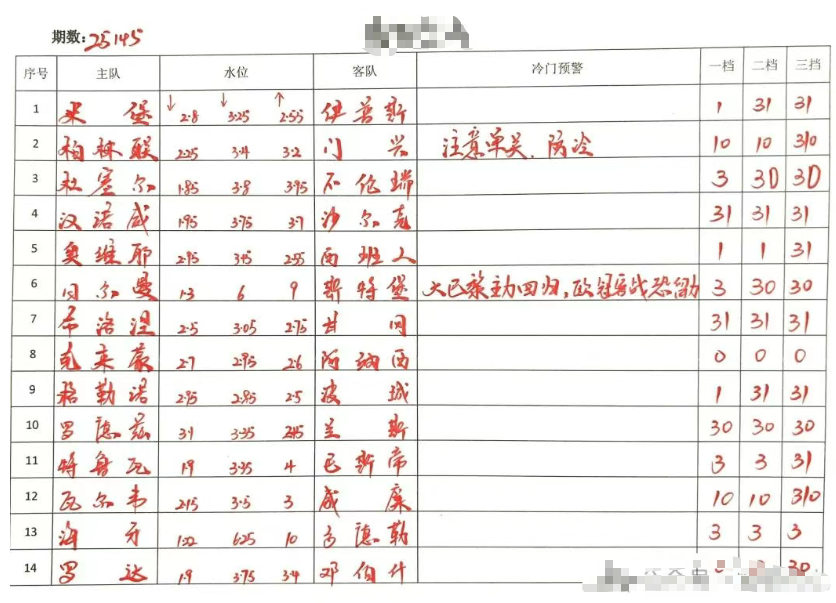 期数: 25145
序号 主队 水位 客队 冷门预警 一档 二档 三挡
1 米堡 ↓2.8 ↓3.25 ↑2.55 伊普斯 1 31 31
2 柏林联 2.25 3.4 3.2 门兴 注意单关、防冷 10 10 310
3 杜塞尔 1.85 3.8 3.95 不伦瑞 3 30 30
4 汉诺威 1.95 3.75 3.7 沙尔克 31 31 31
5 奥维耶 2.95 3.45 2.55 西班人 1 1 31
6 日尔曼 1.3 6 9 斯特堡 大巴黎主力回归,欧冠客战恐 3 30 30
7 布洛涅 2.5 3.05 2.75 甘冈 31 31 31
8 克莱蒙 2.7 2.95 2.6 阿纳西 0 0 0
9 格勒诺 2.95 2.85 2.5 波城 1 31 31
10 罗德兹 3.1 3.35 2.45 兰斯 30 30 30
11 特鲁瓦 1.9 3.35 4 巴斯帝 3 3 31
12 瓦尔韦 2.15 3.5 3 威廉 10 10 310
13 海牙 1.22 6.25 10 多德勒 3 3 3
14 罗达 1.9 3.75 3.4 邓伯什 30